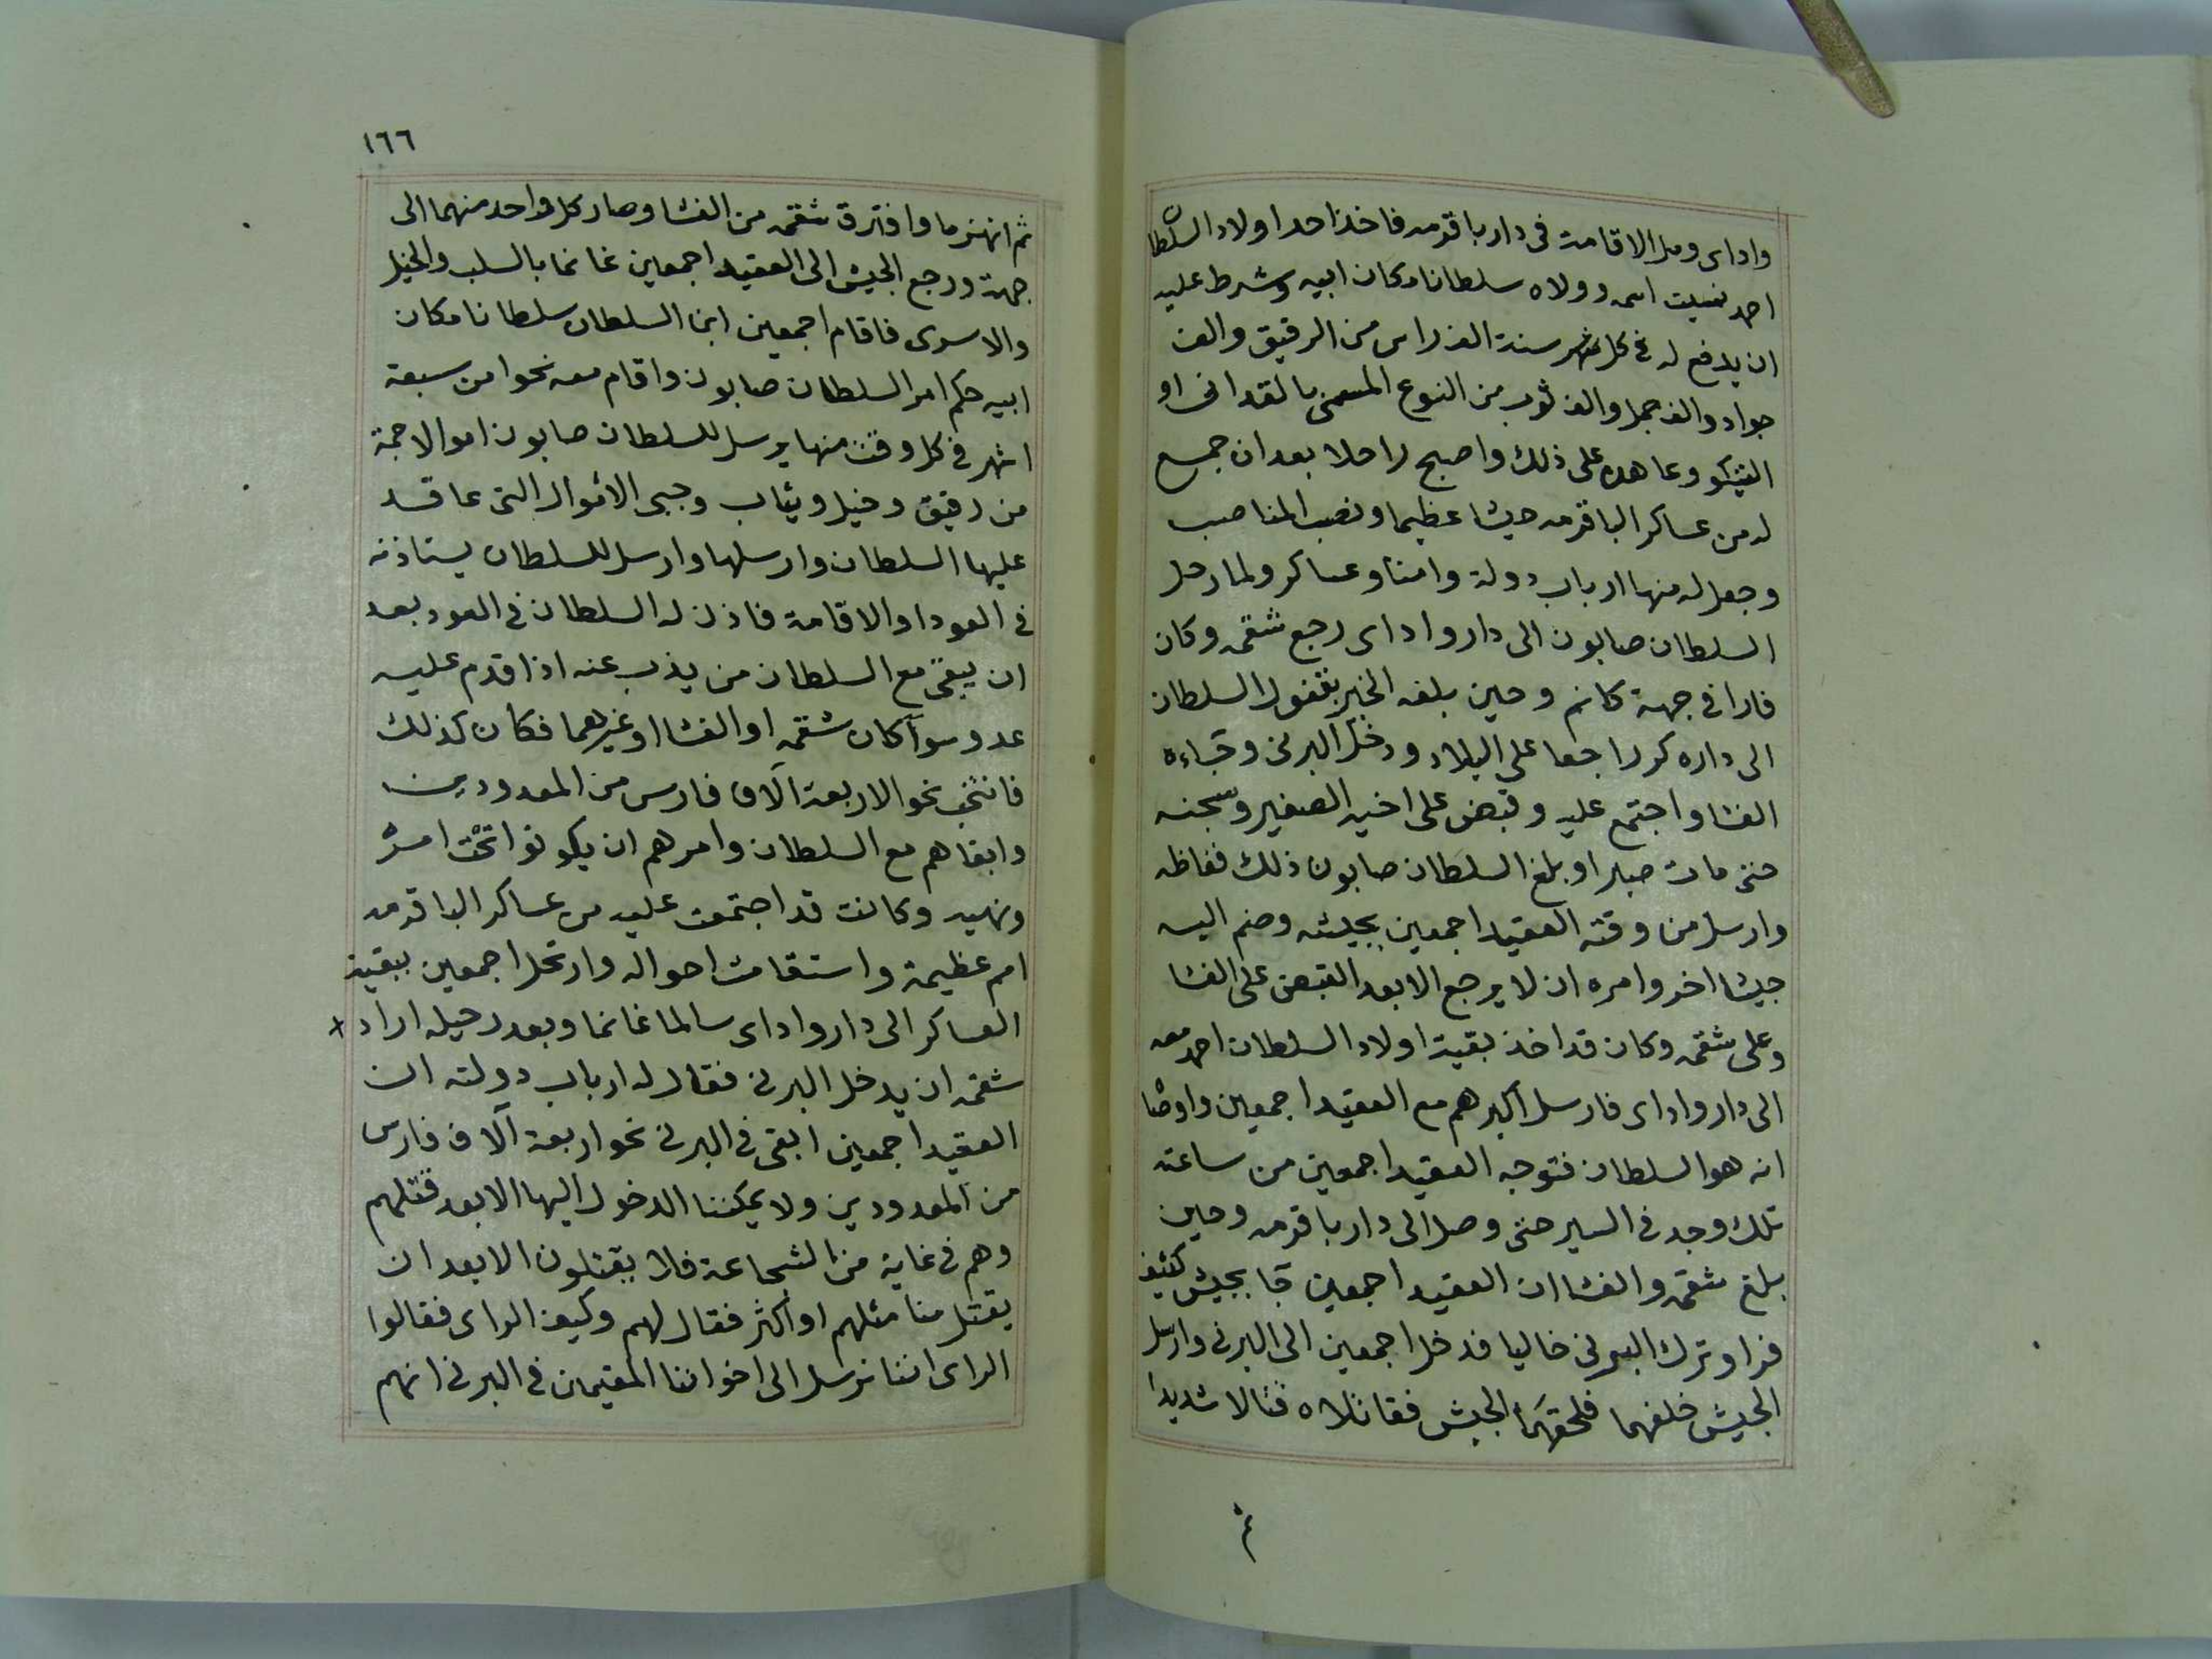 واداى ومل الاقامة فى دار باقرمه فاخذ احد اولاد السلطان
احمد نسيت اسمه وولاه سلطانا مكان ابيه وشرط عليه
ان يدفع له فى كل سنة الف راس من الرقيق والف
جواد والف جمل والف ثوب من النوع المسمى بالقدانى او
التيكو وعاهده على ذلك واصبح راحلا بعد ان جمع
له من عساكر الباقرمه جيشا عظيما ونصب المناصب
وجعل له منها ارباب دولة وامنا وعساكر ولما رحل
السلطان صابون الى دار واداى رجع شقمه وكان
فارا فى جهة كانم وحين بلغه الخبر بقفول السلطان
الى داره كر راجعا على البلاد ودخل البرنى وجاءه
الفشا واجتمع عليه وقبض على اخيه الصغير وسجنه
حتى مات صبرا وبلغ السلطان صابون ذلك فغاظه
وارسل من وقته العقيد اجمعين بجيشه وضم اليه
جيشا اخر وامره ان لا يرجع الا بعد القبض على الفشا
وعلى شقمه وكان قد اخذ بقية اولاد السلطان احمد معه
الى دار واداى فارسل اكبرهم مع العقيد اجمعين واوصاه
انه هو السلطان فتوجه العقيد اجمعين من ساعته
تلك وجد فى السير حتى وصل الى دار باقرمه وحين
بلغ شقمه والفشا ان العقيد اجمعين جا بجيش كثيف
فرا وترك البرنى خاليا فدخل اجمعين الى البرنى وارسل
الجيش خلفهما فلحقهما الجيش فقاتلاه قتالا شديدا
ثم
١٦٦
ثم انهزما وافترق شقمه من الفشا وصار كل واحد منهما الى
جهة ورجع الجيش الى العقيد اجمعين غانما بالسلب والخيل
والاسرى فاقام اجمعين ابن السلطان سلطانا مكان
ابيه حكم امر السلطان صابون واقام معه نحوا من سبعة
اشهر فى كل وقت منها يرسل للسلطان صابون اموالا جمة
من رقيق وخيل وثياب وجبى الاموال التى عاقد
عليها السلطان وارسلها وارسل للسلطان يستاذنه
فى العود او الاقامة فاذن له السلطان فى العود بعد
ان يبقى مع السلطان من يذب عنه اذا قدم عليه
عدو سوآ كان شقمه او الفشا او غيرهما فكان كذلك
فانتخب نحو الاربعة آلاف فارس من المعدودين
وابقاهم مع السلطان وامرهم ان يكونوا تحت امره
ونهيه وكانت قد اجتمعت عليه من عساكر الباقرمه
امم عظيمة واستقامت احواله وارتحل اجمعين ببقية
العساكر الى دار واداى سالما غانما وبعد رحيله اراد +
شقمه ان يدخل البرنى فقال له ارباب دولته ان
العقيد اجمعين ابقى فى البرنى نحو اربعة آلاف فارس
من المعدودين ولا يمكننا الدخول اليها الا بعد قتلهم
وهم فى غاية من الشجاعة فلا يقتلون الا بعد ان
يقتل منا مثلهم او اكثر فقال لهم وكيف الراى فقالوا
الراى اننا نرسل الى اخواننا المقيمين فى البرنى انهم